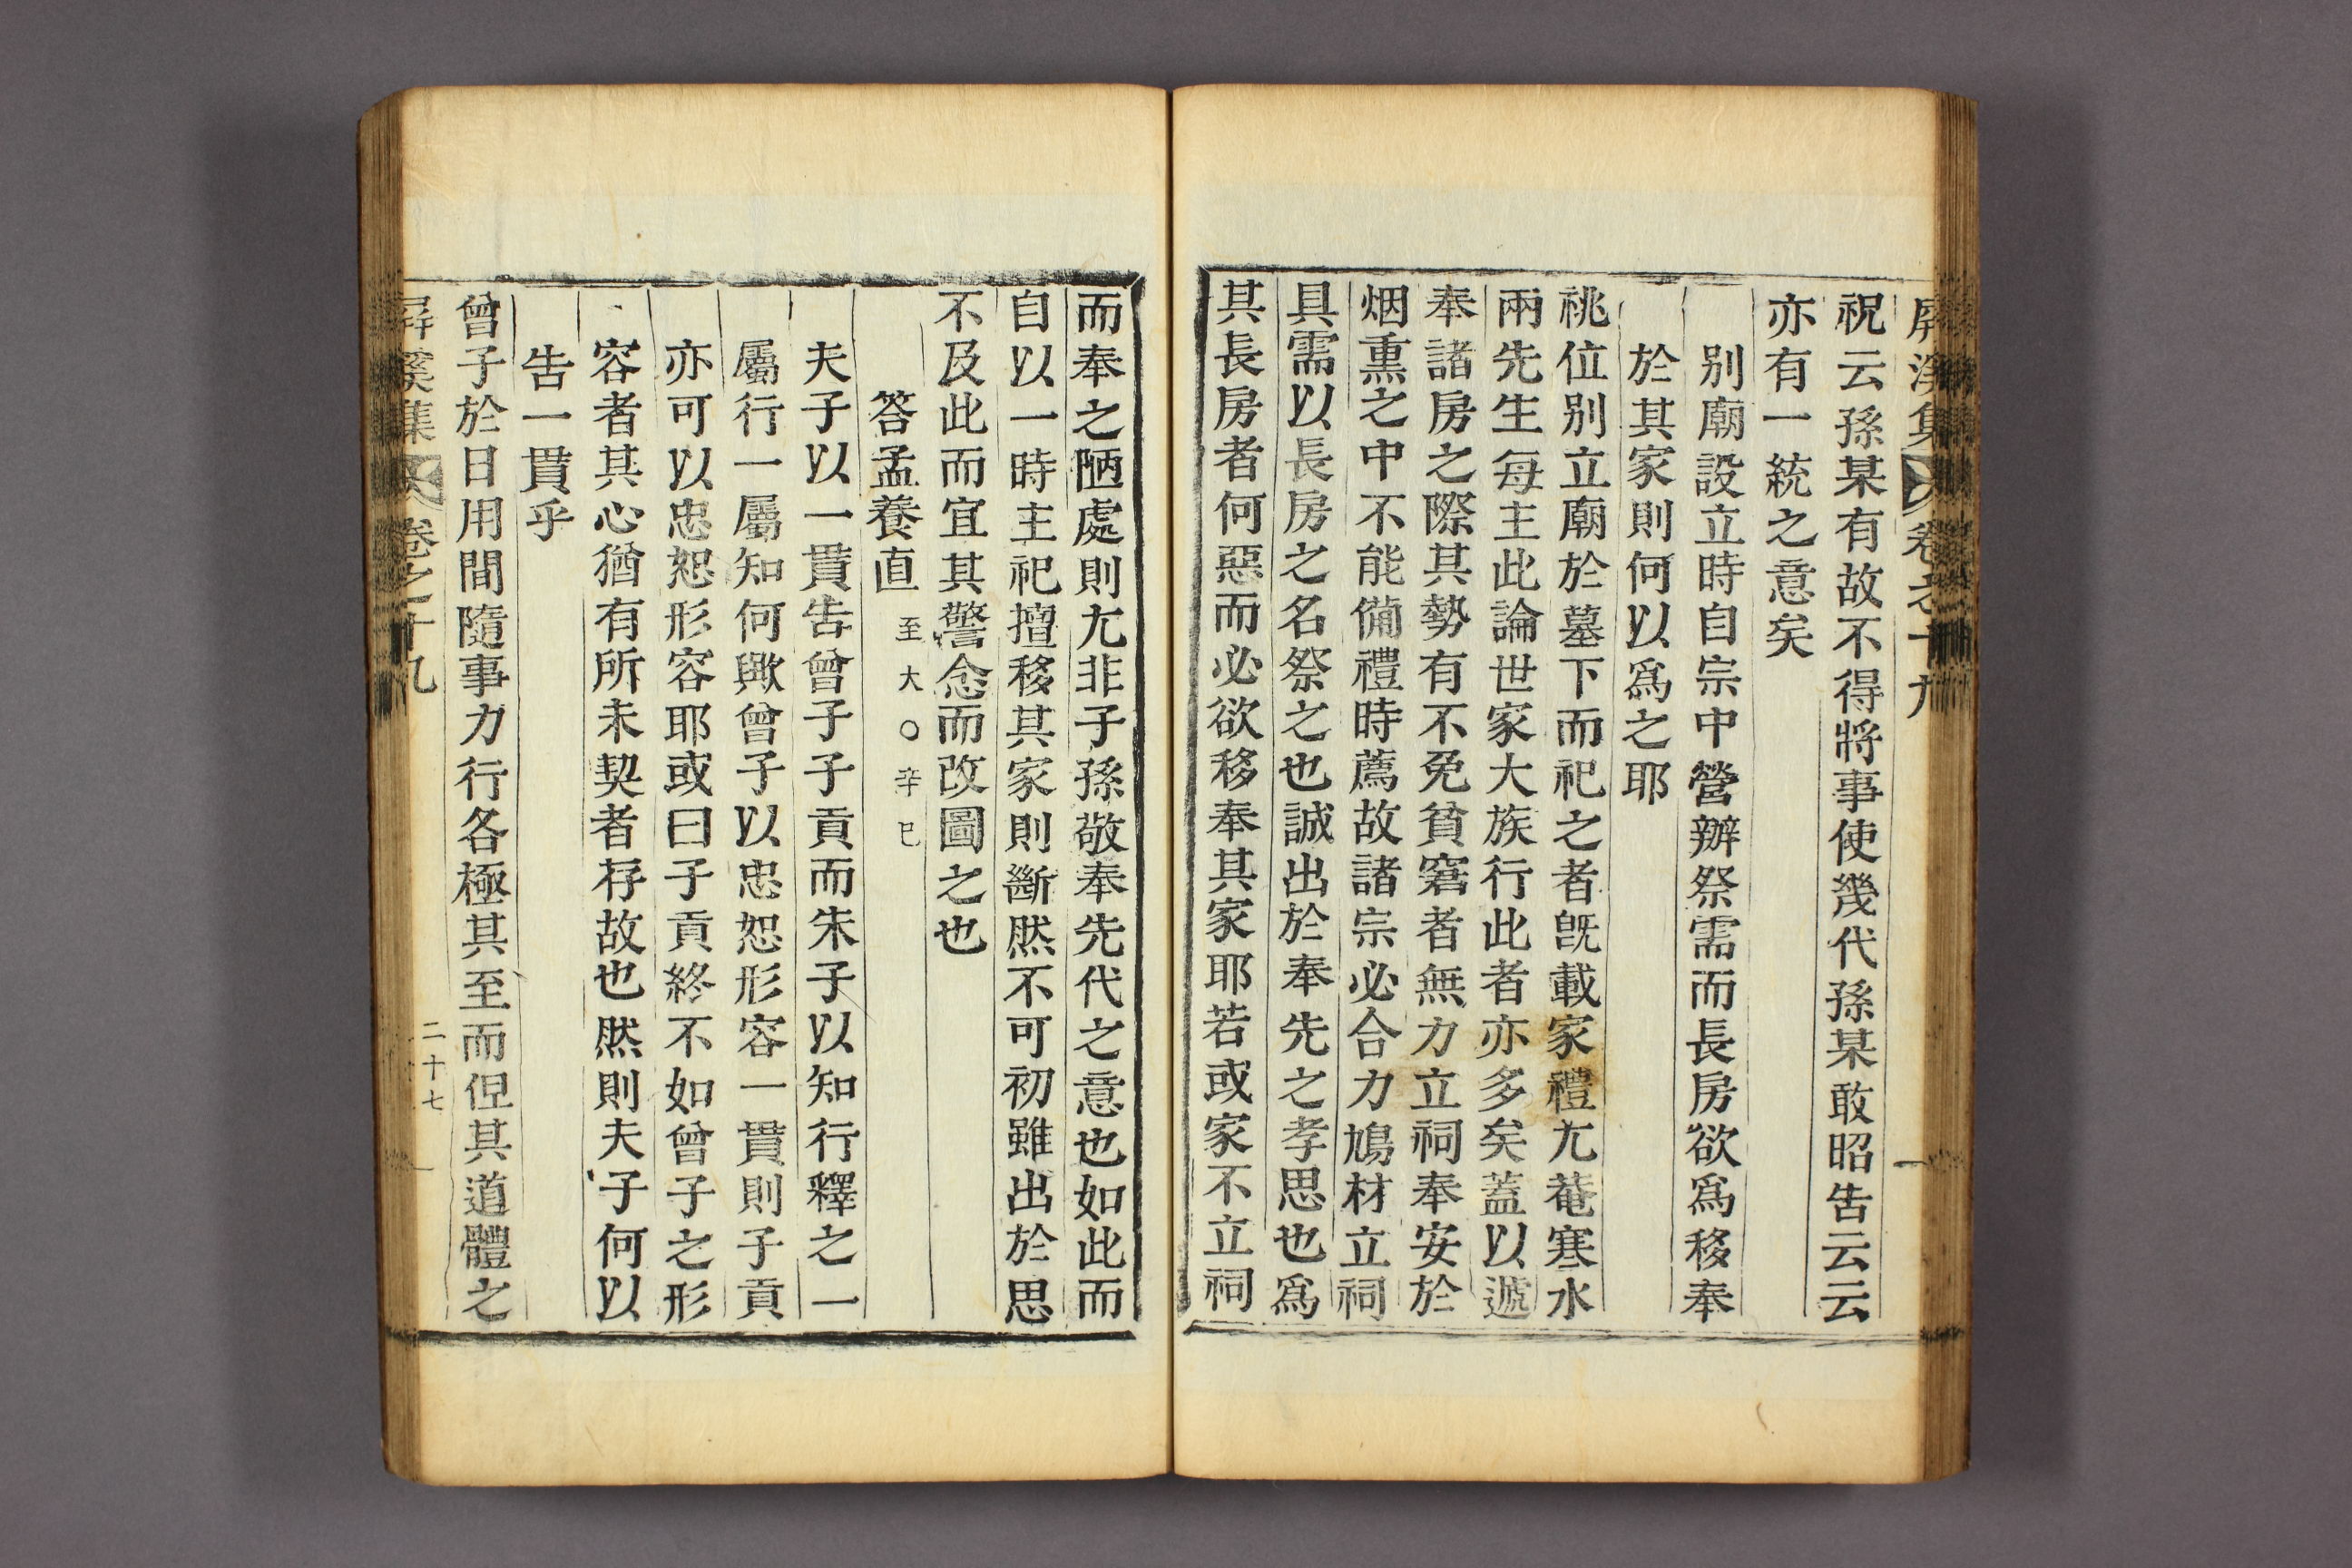 屛溪集 卷之十九
祝云孫某有故不得將事使幾代孫某敢昭告云云
亦有一統之意矣
別廟設立時自宗中營辦祭需而長房欲爲移奉
於其家則何以爲之耶
祧位別立廟於墓下而祀之者旣載家禮尤菴寒水
兩先生每主此論世家大族行此者亦多矣蓋以遞
奉諸房之際其勢有不免貧窘者無力立祠奉安於
烟熏之中不能備禮時薦故諸宗必合力鳩材立祠
具需以長房之名祭之也誠出於奉先之孝思也爲
其長房者何惡而必欲移奉其家耶若或家不立祠
而奉之陋處則尤非子孫敬奉先代之意也如此而
自以一時主祀擅移其家則斷然不可初雖出於思
不及此而宜其警念而改圖之也
答孟養直 至大○辛巳
夫子以一貫告曾子子貢而朱子以知行釋之一
屬行一屬知何歟曾子以忠恕形容一貫則子貢
亦可以忠恕形容耶或曰子貢終不如曾子之形
容者其心猶有所未契者存故也然則夫子何以
告一貫乎
曾子於日用間隨事力行各極其至而但其道體之
屛溪集 卷之十九 二十七